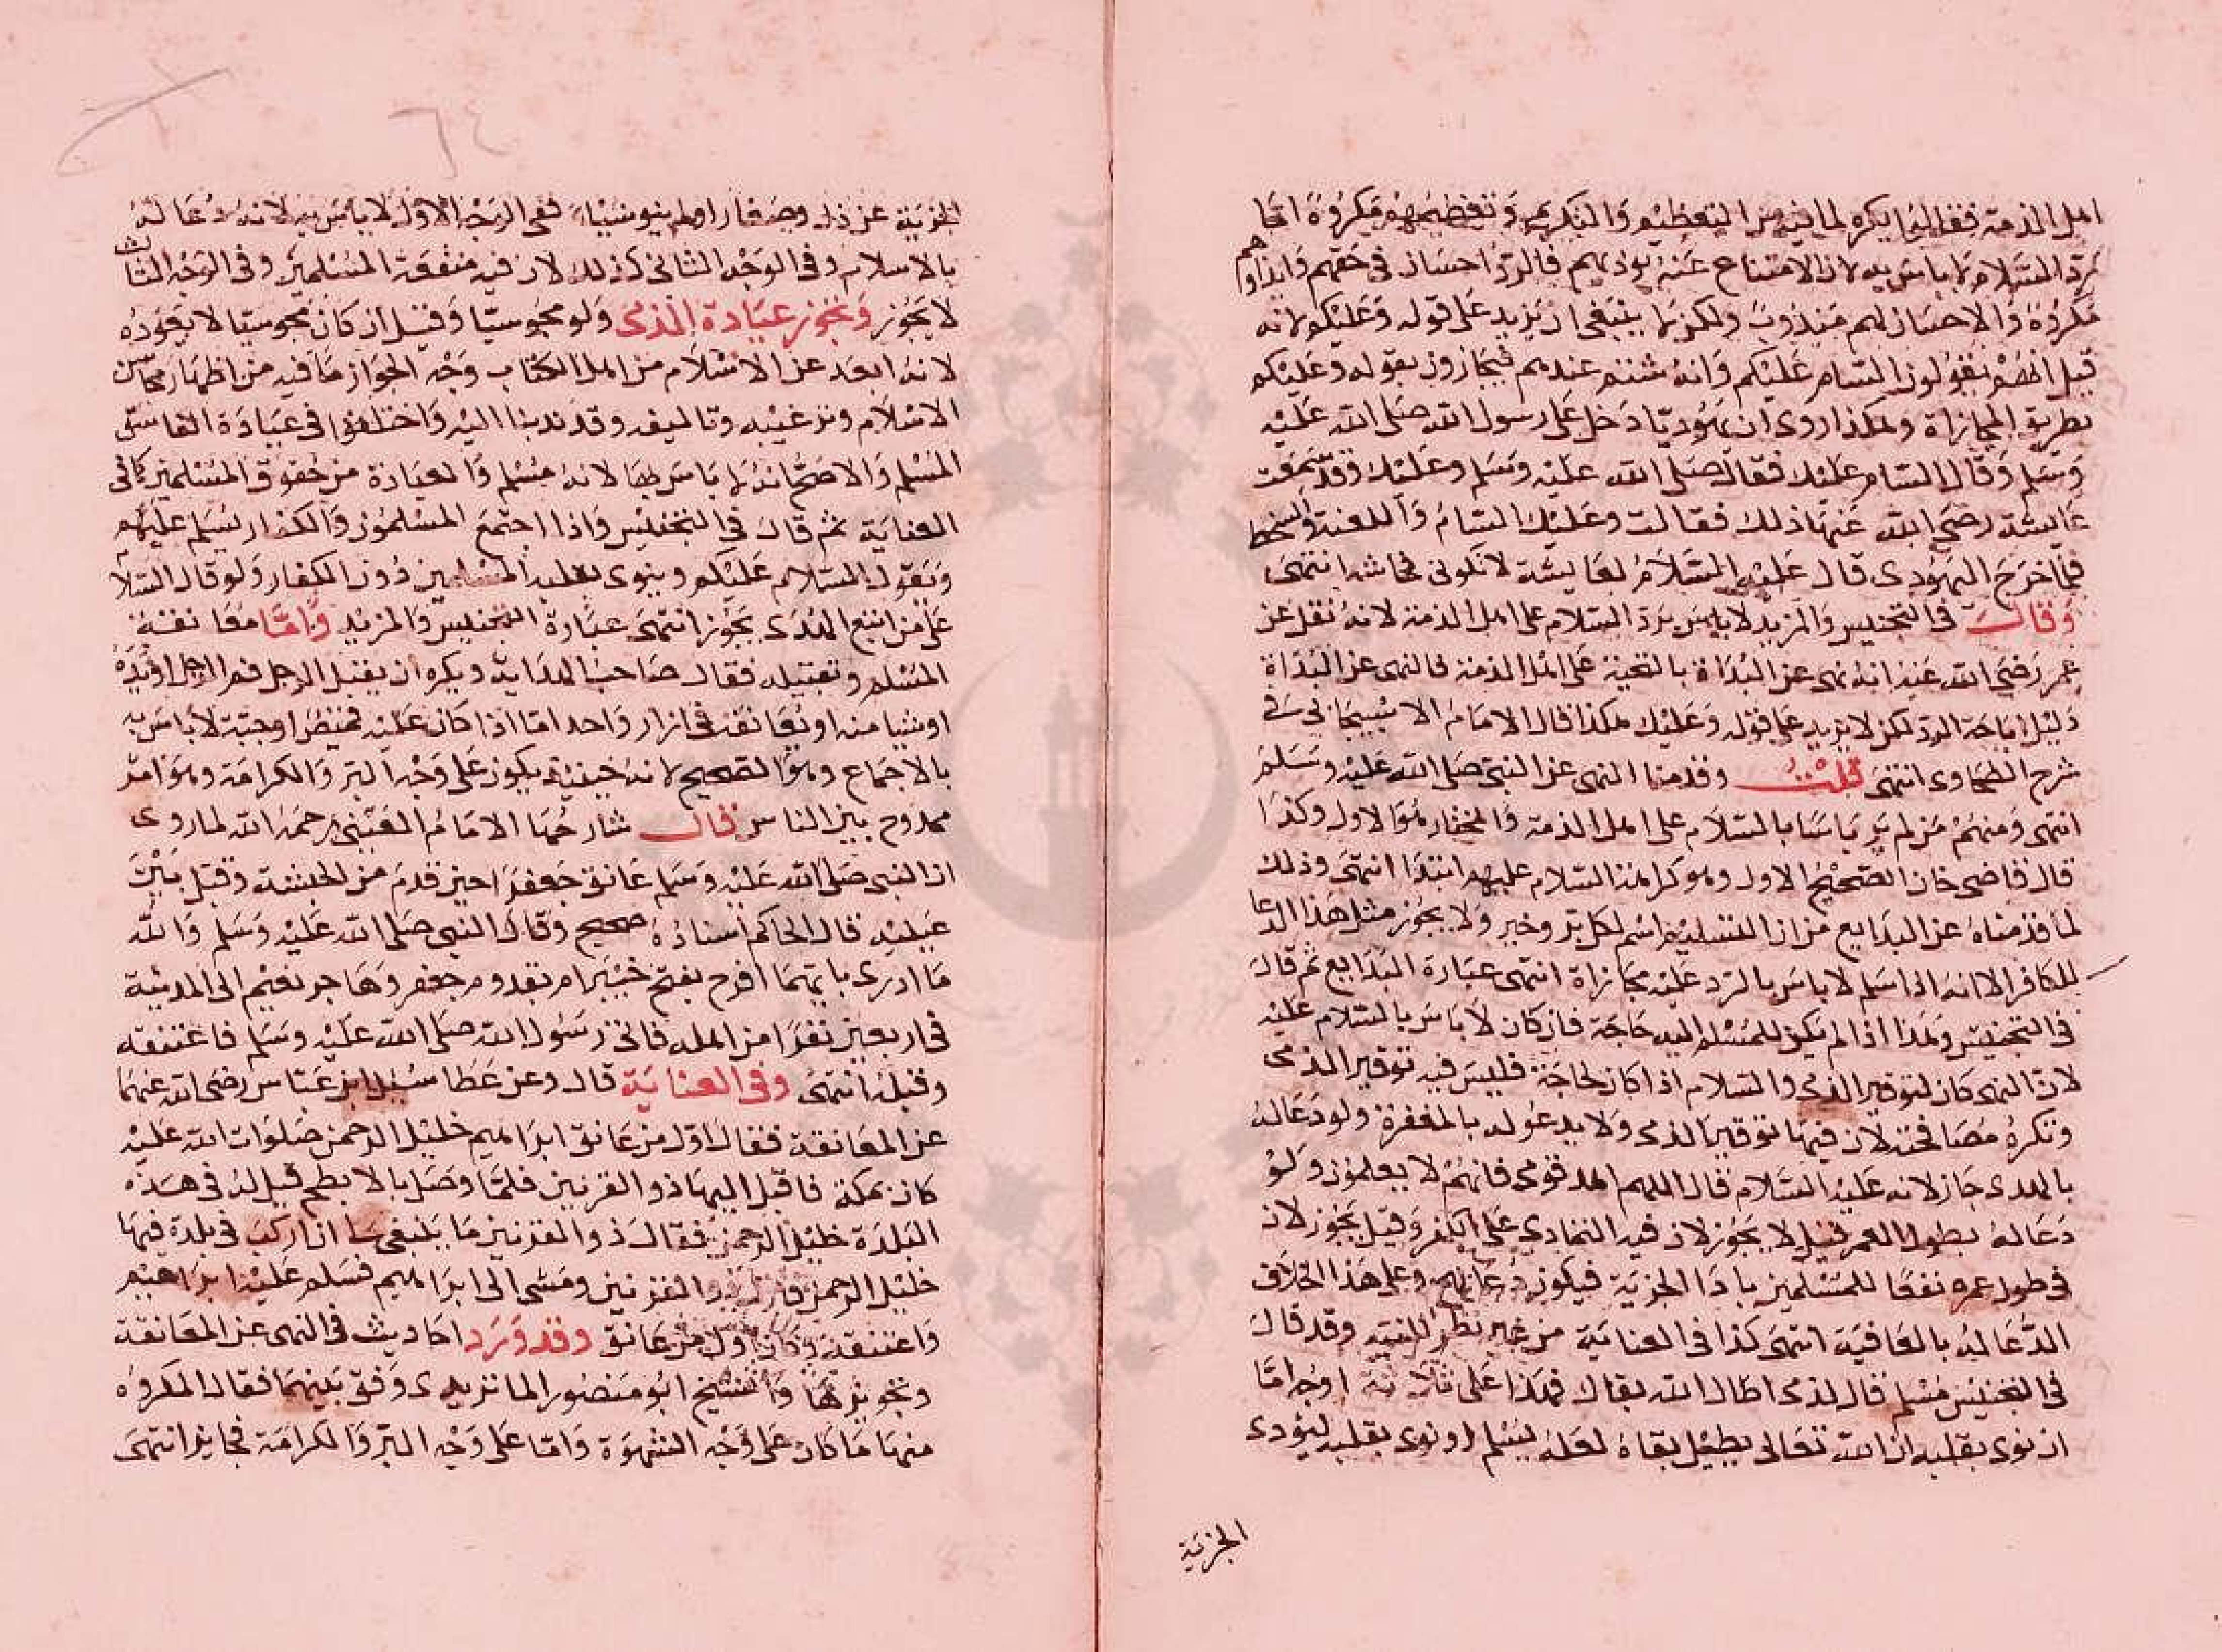 اهل الذمة فقالوا يكره لما فيه من التعظيم والتكريم وتعظيمهم مكروه اما
رد السلام لا باس به لان الامتناع عنه يوذيهم فالرد احسان في حقهم وايذاوهم
مكروه والاحسان لهم مندوب ولكن لا ينبغي ان يزيد على قوله وعليكم لانه
قيل انهم يقولون السام عليكم وانه شتم عندهم فيجازون بقوله وعليكم
بطريق المجازاة وهكذا روى ان يهوديا دخل على رسول الله صلى الله عليه
وسلم وقال السام عليك فقال صلى الله عليه وسلم وعليك وقد سمعت
عايشة رضى الله عنها ذلك فقالت وعليك السام واللعنة والسخط
فلما خرج اليهودى قال عليه السلام لعايشة لا تكونى فحاشه انتهى
وقال في التجنيس والمزيد لا باس برد السلام على اهل الذمة لانه نقل عن
عمر رضى الله عنه انه نهى عن البداة بالتحية على اهل الذمة فالنهى عن البداة
دليل اباحة الرد لكن لا يزيد على قوله وعليك هكذا قال الامام الاسبيجابي في
شرح الطحاوى انتهى قلت وقدمنا النهى عن النبى صلى الله عليه وسلم
انتهى ومنهم من لم ير باسا بالسلام على اهل الذمة والمختار هو الاول وكذا
قال قاضى خان الصحيح الاول وهو كراهة السلام عليهم ابتدا انتهى وذلك
لما قدمناه عن البدايع من ان التسليم اسم لكل بر وخير ولا يجوز مثل هذا الدعا
للكافر الا انه اذا سلم لا باس بالرد عليه مجازاة انتهى عبارة البدايع ثم قال
فى التجنيس وهذا اذا لم يكن للمسلم اليه حاجة فان كان لا باس بالسلام عليه
لان النهى كان لتوقير الذمى والسلام اذا كان لحاجة فليس فيه توقير الذمى
وتكره مصافحته لان فيها توقير الذمى ولا يدعو له بالمغفرة ولو دعا له
بالهدى جاز لانه عليه السلام قال اللهم اهد قومى فانهم لا يعلمون ولو
دعا له بطول العمر قيل لا يجوز لان فيه التمادى على الكفر وقيل يجوز لان
فى طول عمره نفعا للمسلمين بادا الجزية فيكون دعا لهم وعلى هذا الخلاف
الدعا له بالعافية انتهى كذا فى العناية من غير نظر للنية وقد قال
فى التجنيس مسلم قال لذمى اطال الله بقاك فهذا على ثلاثة اوجه اما
ان نوى بقلبه ان الله تعالى يطيل بقاه لعله يسلم او نوى بقلبه ليؤدى
الجزية
٦٤
الجزية عن ذل وصغار او لم ينو شيئا ففى الوجه الاول لا باس به لانه دعا له
بالاسلام وفى الوجه الثانى كذلك لان فيه منفعة المسلمين وفى الوجه الثالث
لا يجوز وتجوز عيادة الذمى ولو مجوسيا وقيل ان كان مجوسيا لا يعوده
لانه ابعد عن الاسلام من اهل الكتاب وجه الجواز ما فيه من اظهار محاسن
الاسلام وترغيبه وتاليفه وقد ندبنا اليه واختلفوا فى عيادة الفاسق
المسلم والاصح انه لا باس بها لانه مسلم والعيادة من حقوق المسلمين كما فى
العناية ثم قال فى التجنيس واذا اجتمع المسلمون والكفار يسلم عليهم
ويقول السلام عليكم وينوى بقلبه المسلمين دون الكفار ولو قال السلام
على من اتبع الهدى يجوز انتهى عبارة التجنيس والمزيد واما معانقة
المسلم وتقبيله فقال صاحب الهداية ويكره ان يقبل الرجل فم الرجل او يده
او شيا منه او يعانقه فى ازار واحد اما اذا كان عليه قميص او جبة لا باس به
بالاجماع وهو الصحيح لانه حينئذ يكون على وجه البر والكرامة وهو امر
ممدوح بين الناس قال شارحها الامام العينى رحمه الله لما روى
ان النبى صلى الله عليه وسلم عانق جعفرا حين قدم من الحبشة وقبل بين
عينيه قال الحاكم اسناده صحيح وقال النبى صلى الله عليه وسلم والله
ما ادرى بايهما افرح بفتح خيبر ام بقدوم جعفر وهاجر نعيم الى المدينة
فى اربعين نفرا من اهله فاتى رسول الله صلى الله عليه وسلم فاعتنقه
وقبله انتهى وفى العناية قال وعن عطا سئل ابن عباس رضى الله عنهما
عن المعانقة فقال اول من عانق ابراهيم خليل الرحمن صلوات الله عليه
كان بمكة فاقبل اليها ذو القرنين فلما وصل بالابطح قيل له فى هذه
البلدة خليل الرحمن فقال ذو القرنين ما ينبغى لى ان اركب فى بلدة فيها
خليل الرحمن فنزل ذو القرنين ومشى الى ابراهيم فسلم عليه ابراهيم
واعتنقه وكان اول من عانق وقد ورد احاديث فى النهى عن المعانقة
وتجويزها والشيخ ابو منصور الماتريدى وفق بينهما فقال المكروه
منها ما كان على وجه الشهوة واما على وجه البر والكرامة فجايز انتهى